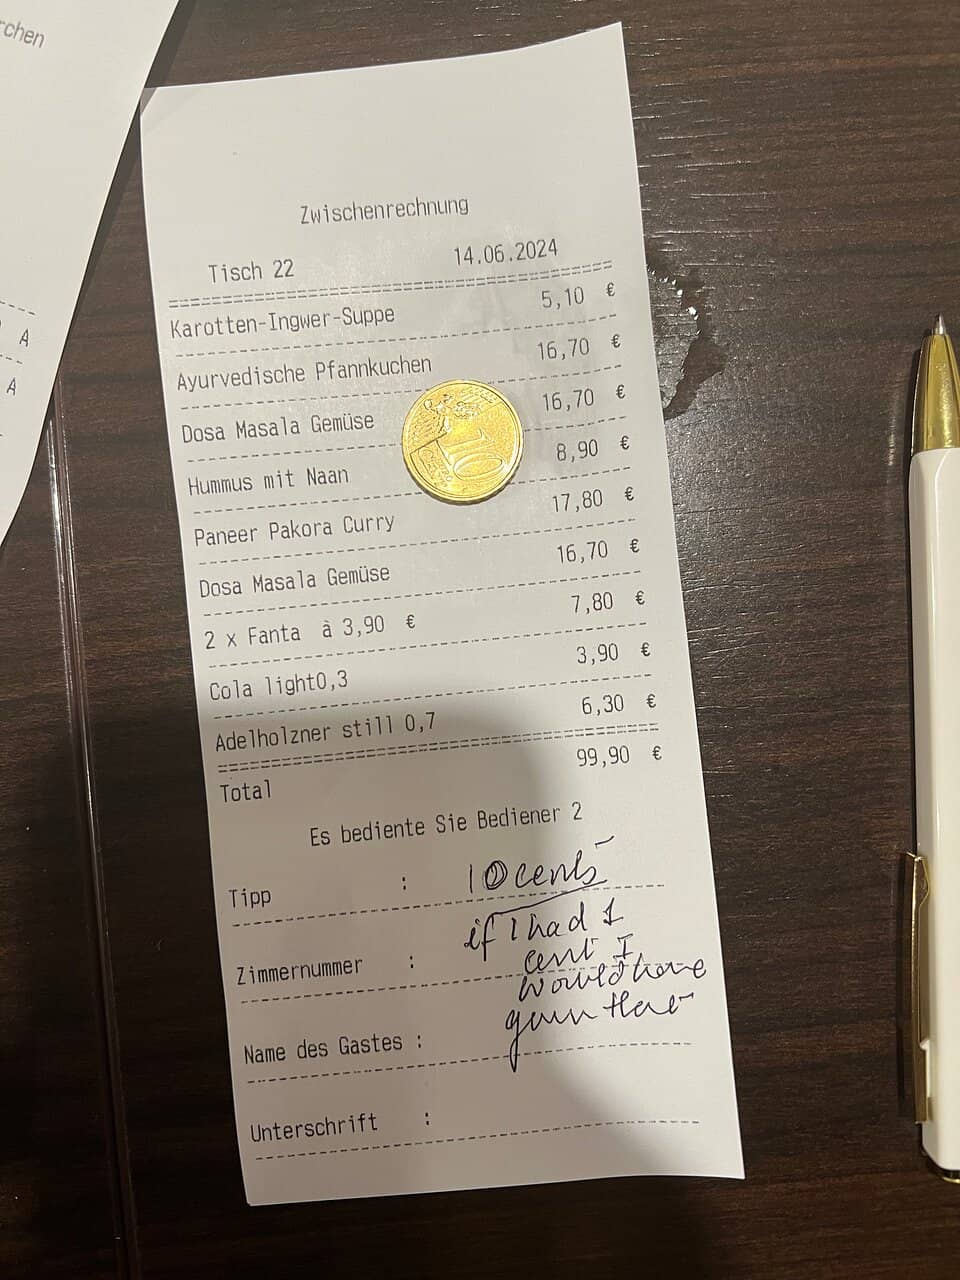 rchen
A
A
Zwischenrechnung
Tisch 22 14.06.2024
Karotten-Ingwer-Suppe 5,10 €
Ayurvedische Pfannkuchen 16,70 €
Dosa Masala Gemüse 16,70 €
Hummus mit Naan 8,90 €
Paneer Pakora Curry 17,80 €
Dosa Masala Gemüse 16,70 €
2 x Fanta à 3,90 € 7,80 €
Cola light0,3 3,90 €
Adelholzner still 0,7 6,30 €
Total 99,90 €
Es bediente Sie Bediener 2
Tipp : 10 cents
if I had 1
Zimmernummer : cent I
would have
Name des Gastes :
Unterschrift :
10
EURO
CENT